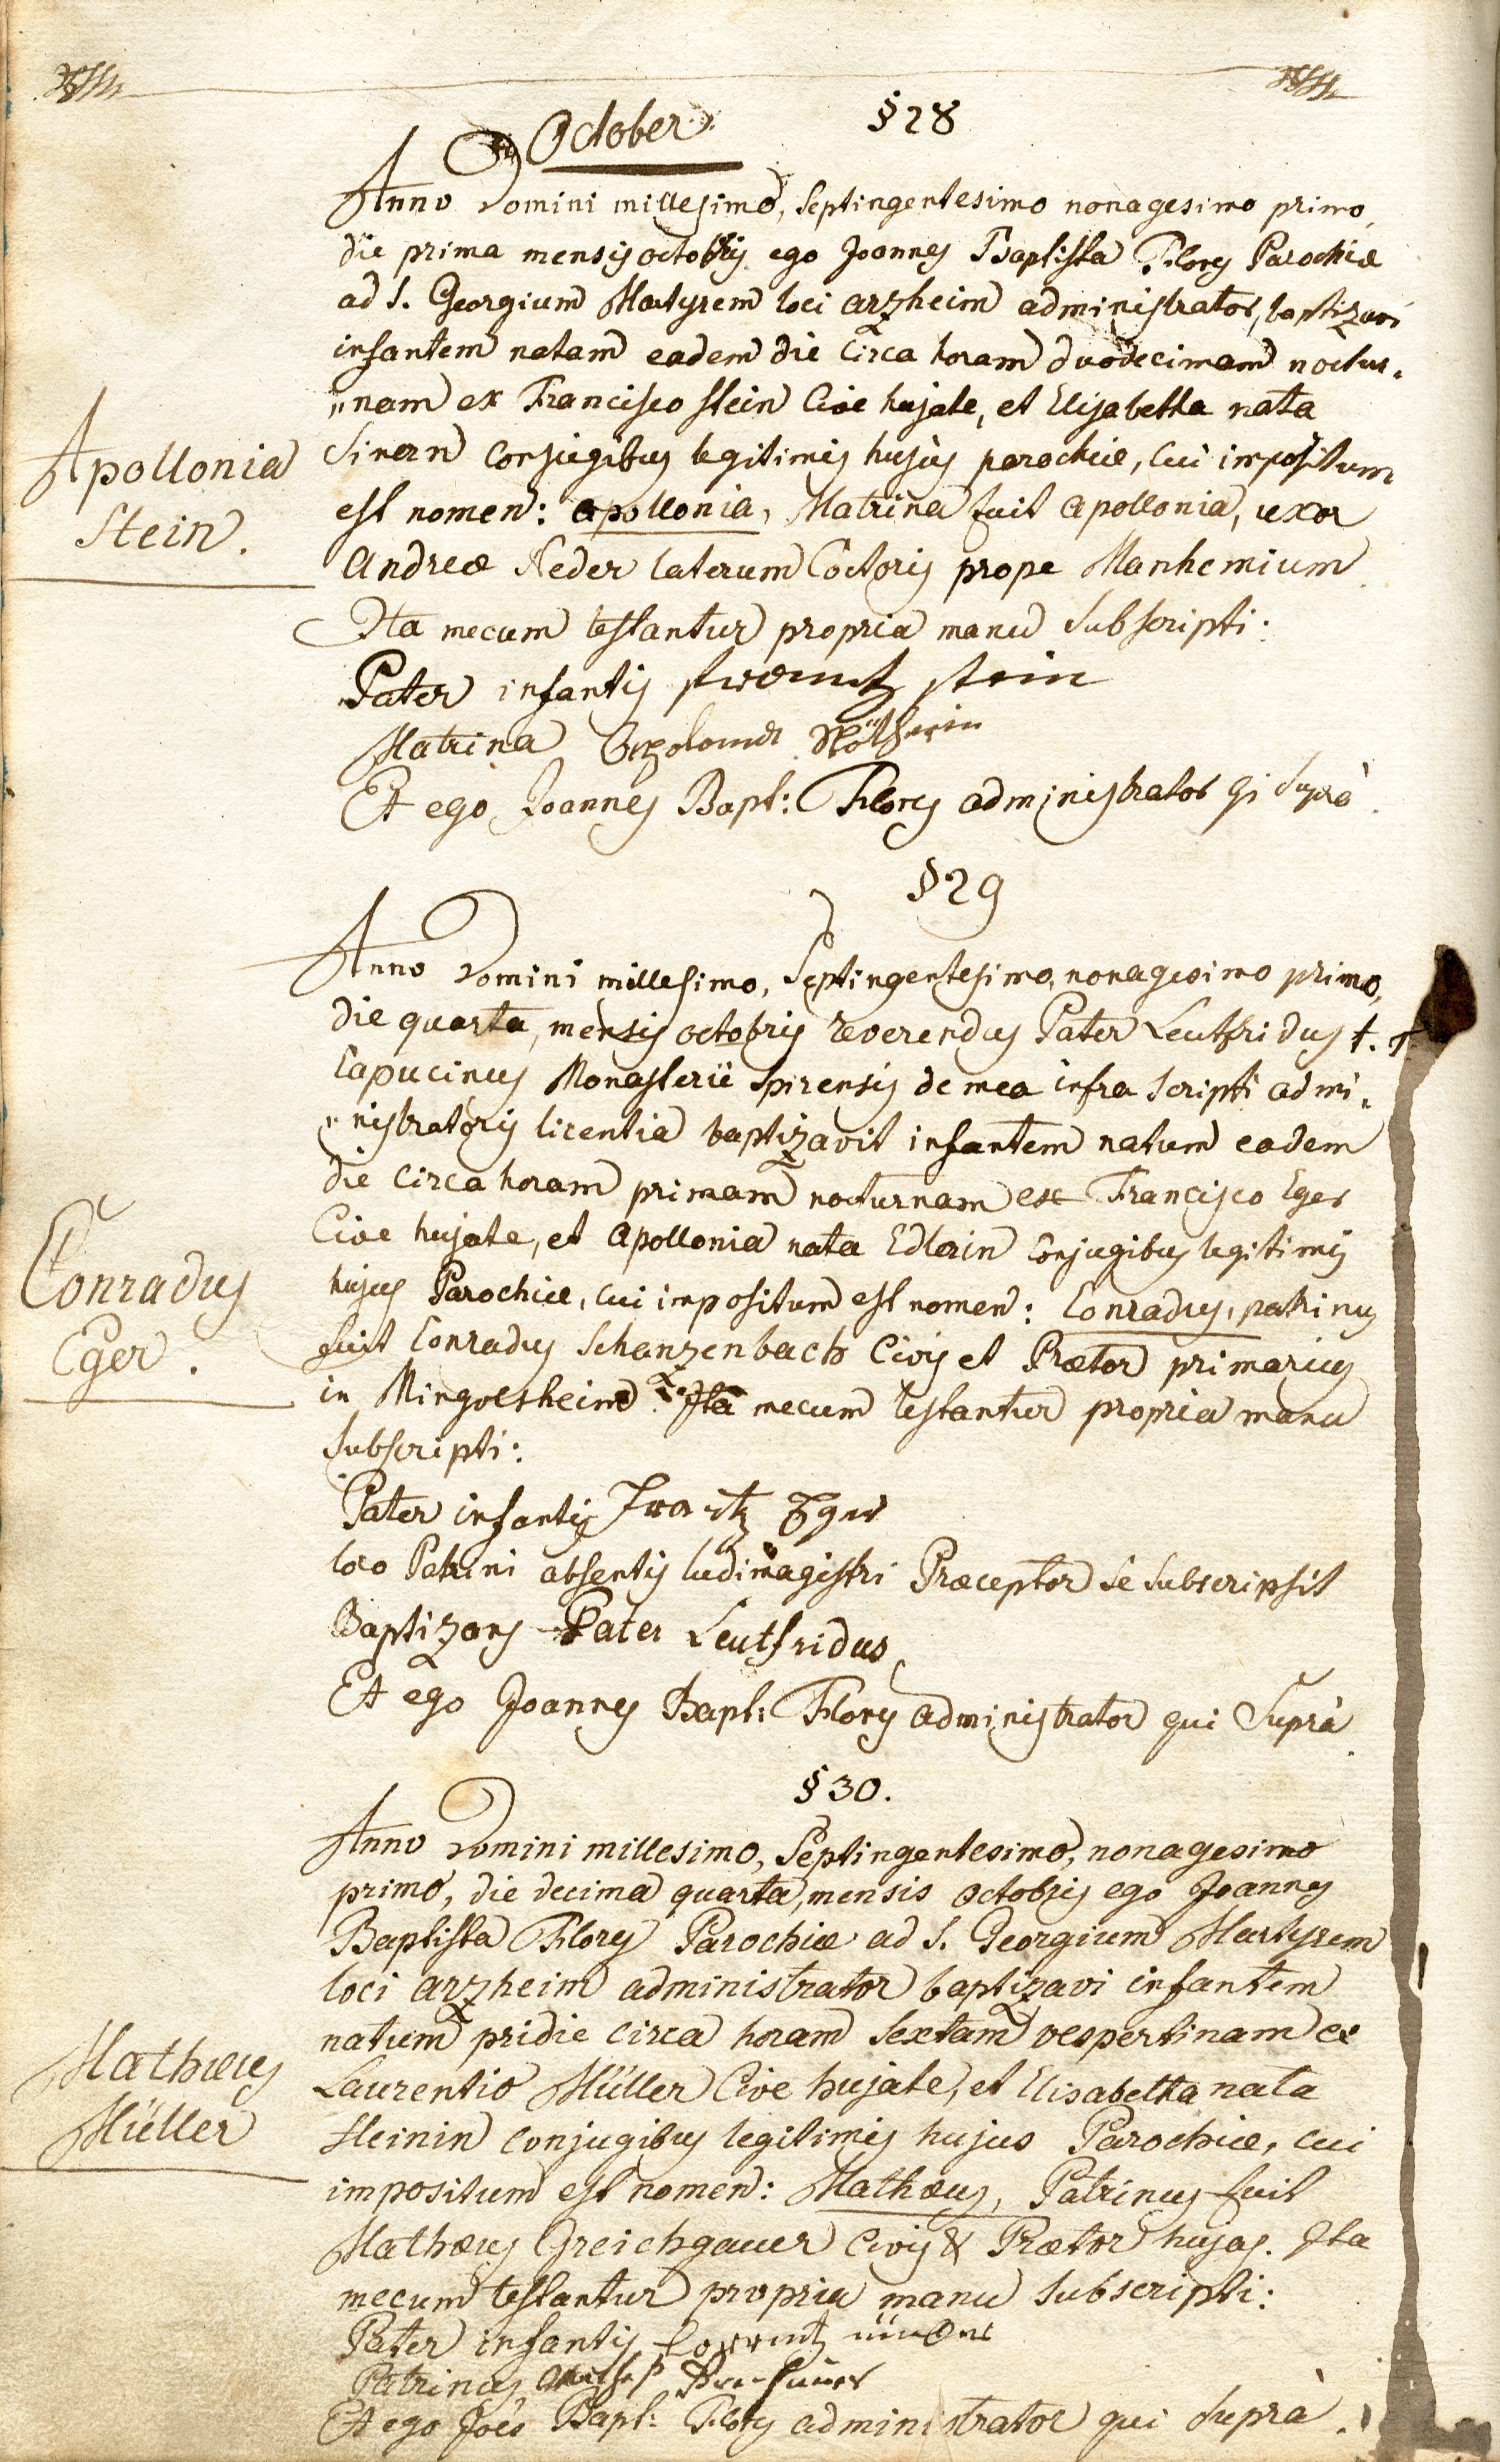 October
§ 28
Anno Domini millesimo, Septingentesimo nonagesimo primo,
die prima mensis octobris ego Joannes Baptista Flory Parochiæ
ad S. Georgium Martyrem loci arzheim administrator, baptizavi
infantem natam eadem die circa horam duodecimam noctur-
"nam ex Francisco Stein Cive hujate, et Elisabetha nata
Apollonia
Stein.
conjugibus legitimis hujus parochiæ, cui impositum
est nomen: apollonia, Matrina fuit apollonia, uxor
andreæ Neder laterum Coctoris prope Manhemium
Ita mecum testantur propria manu Subscripti:
Pater infantis frantz stein
Matrina
Et ego Joannes Bapt: Flory administrator qi Suprà.
§ 29
Anno Domini millesimo, Septingentesimo, nonagesimo primo,
die quarta, mensis octobris reverendus Pater Leutfridus t. t.
Capucinus Monasterii Spirensis de mea infra scripti admi-
"nistratoris licentia baptizavit infantem natum eadem
die circa horam primam nocturnam ex Francisco Eger
Cive hujate, et apollonia nata Edlerin conjugibus legitimis
Conradus
Eger.
hujus Parochiæ, cui impositum est nomen: Conradus, patrinus
fuit Conradus Schanzenbach Civis et Prætor primarius
in Mingolsheim. Ita mecum testantur propria manu
Subscripti:
Pater infantis Frantz Eger
loco Patrini absentis ludimagistri Præceptor se subscripsit
Baptizans Pater Leutfridus
Et ego Joannes Bapt: Flory administrator qui Suprà.
§ 30.
Anno Domini millesimo, Septingentesimo, nonagesimo
primo, die decima quarta, mensis octobris ego Joannes
Baptista Flory Parochiæ ad S. Georgium Martyrem
loci arzheim administrator baptizavi infantem
natum pridie circa horam Sextam vespertinam ex
Mathæus
Müller
Laurentio Müller Cive hujate, et Elisabetha nata
Steinin conjugibus legitimis hujus Parochiæ, cui
impositum est nomen: Mathæus, Patrinus fuit
Mathæus Greichgauer Civis & Prætor hujas. Ita
mecum testantur propria manu Subscripti:
Pater infantis Lorentz
Patrinus
Et ego Joës Bapt: Flory administrator qui Suprà.